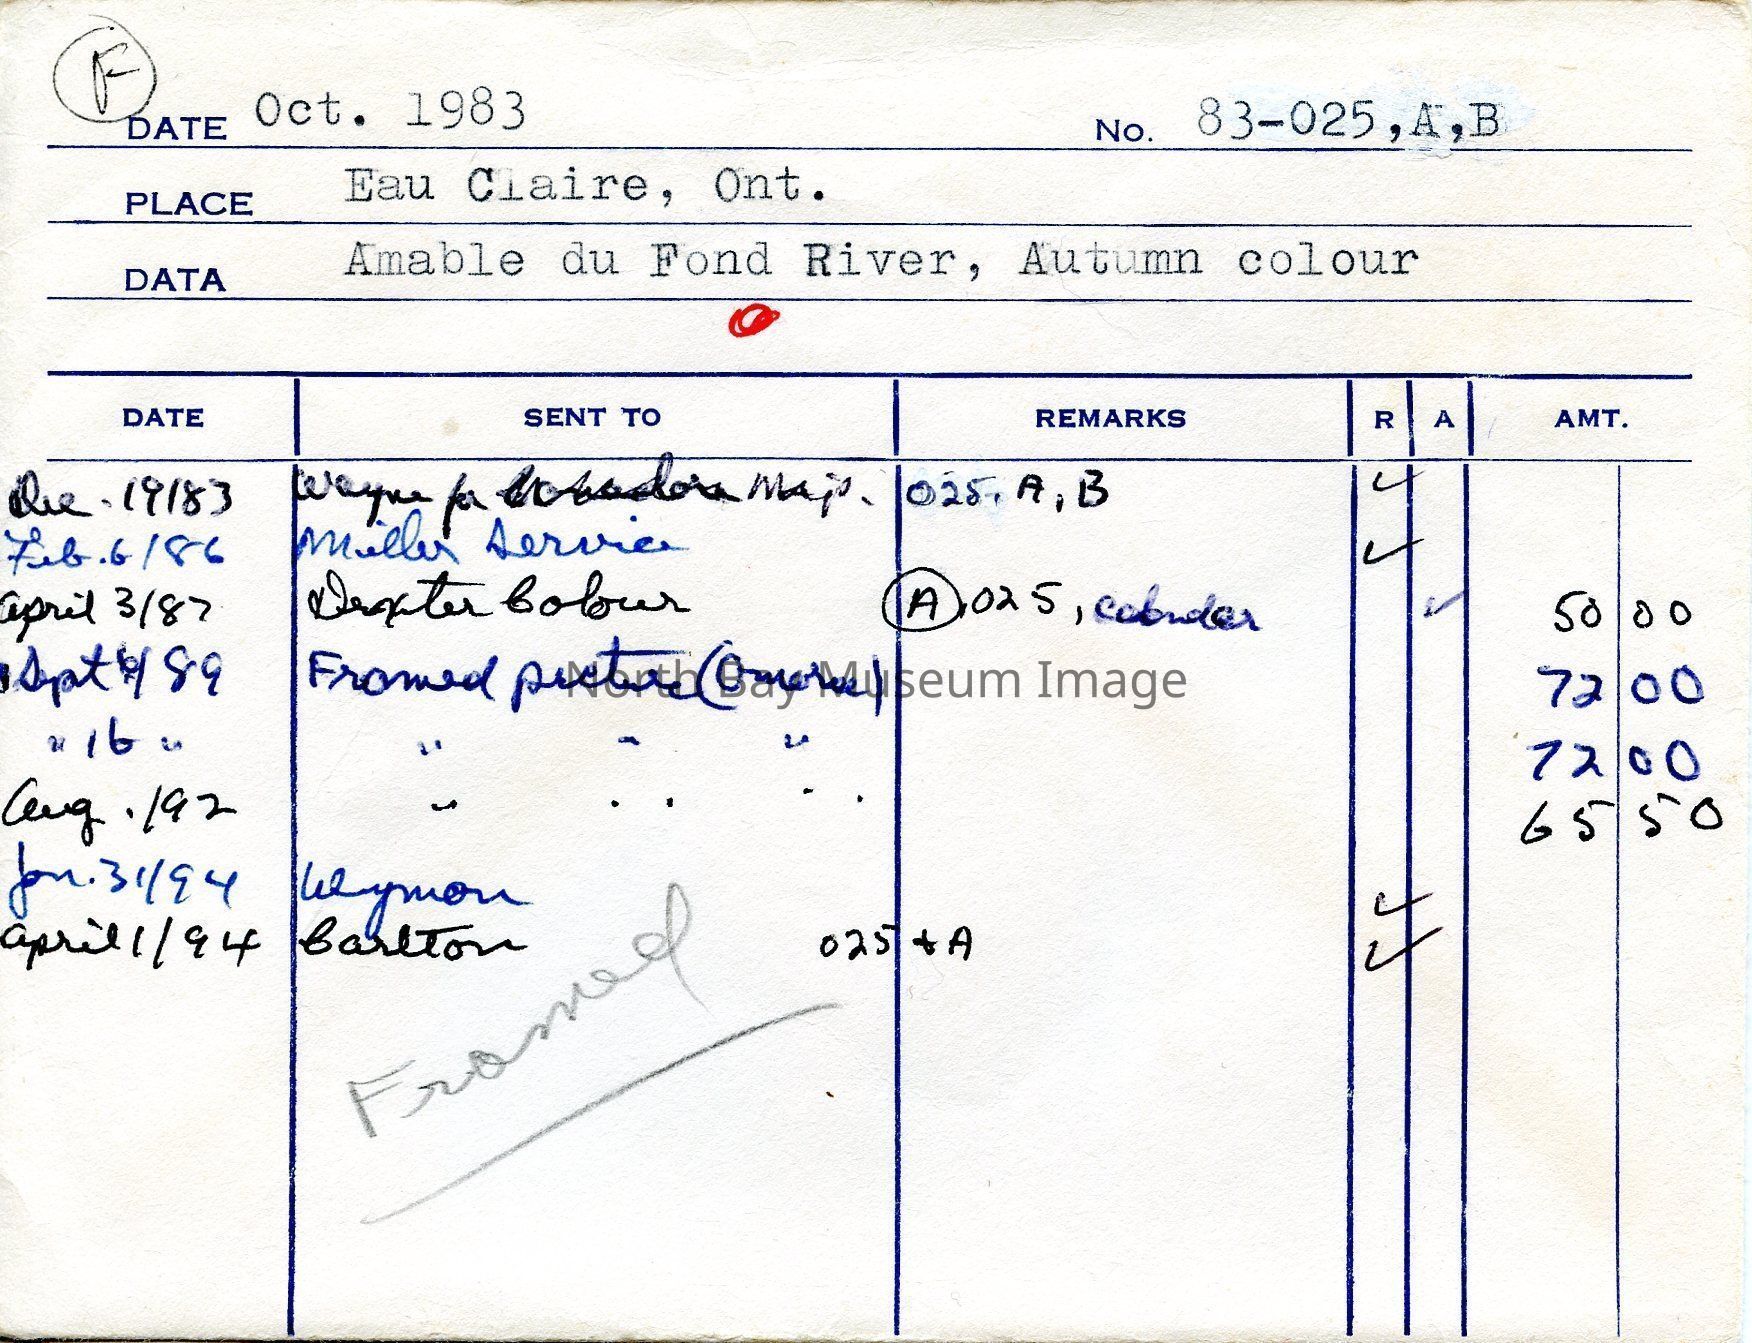 F
DATE Oct. 1983 No. 83-025,A,B
PLACE Eau Claire, Ont.
DATA Amable du Fond River, Autumn colour
DATE SENT TO REMARKS R A AMT.
Dec. 19/83 Wayne for Map. 025, A, B ✓
Feb. 6/86 Miller Service ✓
April 3/87 Dexter Colour A, 025, calendar ✓ 50 00
Sept /89 Framed picture 72 00
" 16 " " " " 72 00
Aug. /92 " " " 65 50
Jan. 31/94 ✓
April 1/94 Carlton 025 + A ✓
Framed
North Bay Museum Image